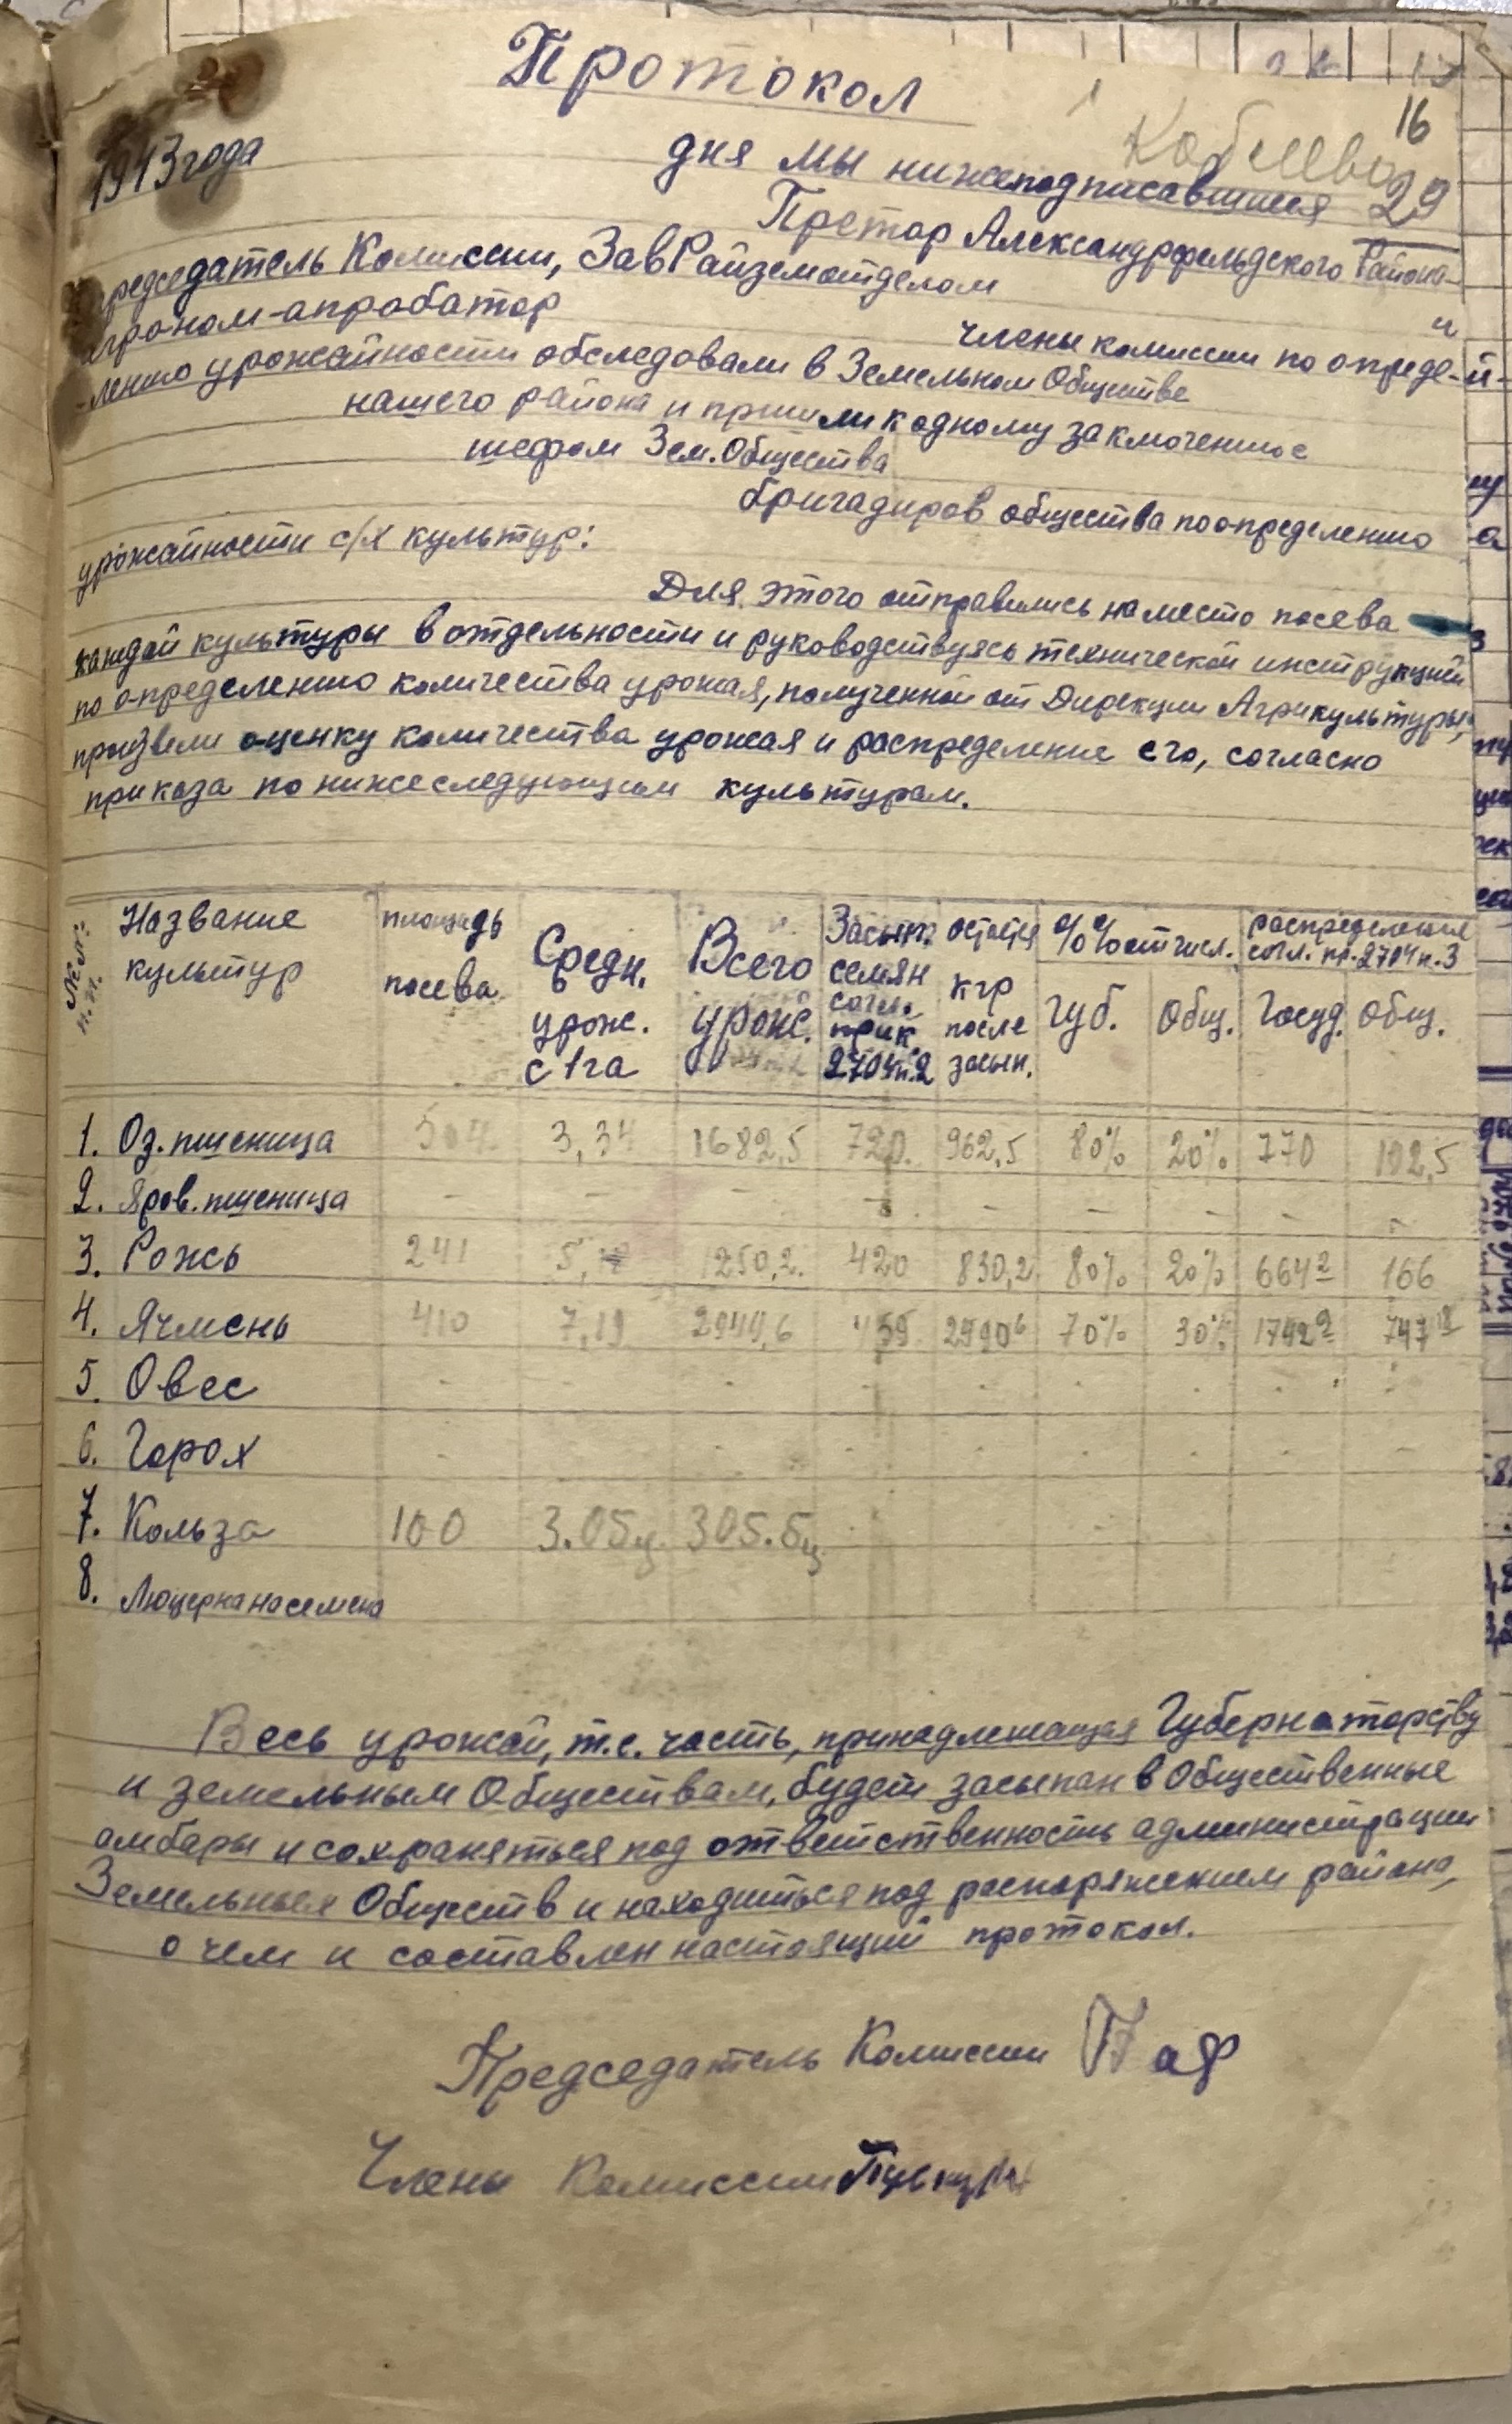 Протокол
16
Коблево
29
1943 года
дня мы нижеподписавшиеся
Претор Александрфельдского Района-
председатель Комиссии, ЗавРайземотделом
и
агроном-апробатор
члены комиссии по опреде-
-лению урожайности обследовали в Земельном Обществе
нашего района и пришли к одному заключению с
шефом Зем. Общества
бригадиров общества по определению
урожайности с/х культур:
Для этого отправились на место посева
каждой культуры в отдельности и руководствуясь технической инструкций
по определению количества урожая, полученной от Дирекции Агрикультуры,
произвели оценку количества урожая и распределение его, согласно
приказа по нижеследующим культурам.
№№: п.п. Название культур площадь посева Средн. урож. с 1 га Всего урож. Засып. семян согл. прик 2704 п.2 остается кгр после засып. %% отчисл. распределения согл. пр. 2704 п.3
губ. общ. Госуд. общ.
1. Оз. пшеница 504 3,34 1682,5 720. 962,5 80% 20% 770 192,5
2. Яров. пшеница - - - - - - - - -
3. Рожь 241 5, 1250,2. 420 830,2 80% 20% 664 2 166
4. Ячмень 410 7,19 2949,6 459 2490 6 70% 30% 1742 9 747 18
5. Овес - - - - - - - - -
6. Горох - - - - - - - - -
7. Кользa 100 3.05ц. 305.5ц
8. Люцерна на семена
Весь урожай, т.е. часть, принадлежащая Губернаторству
и земельным Обществам, будет засыпан в Общественные
амбары и сохраняться под ответственность администрации
Земельных Обществ и находиться под распоряжением района,
о чем и составлен настоящий протокол.
Председатель Комиссии
Члены Комиссии